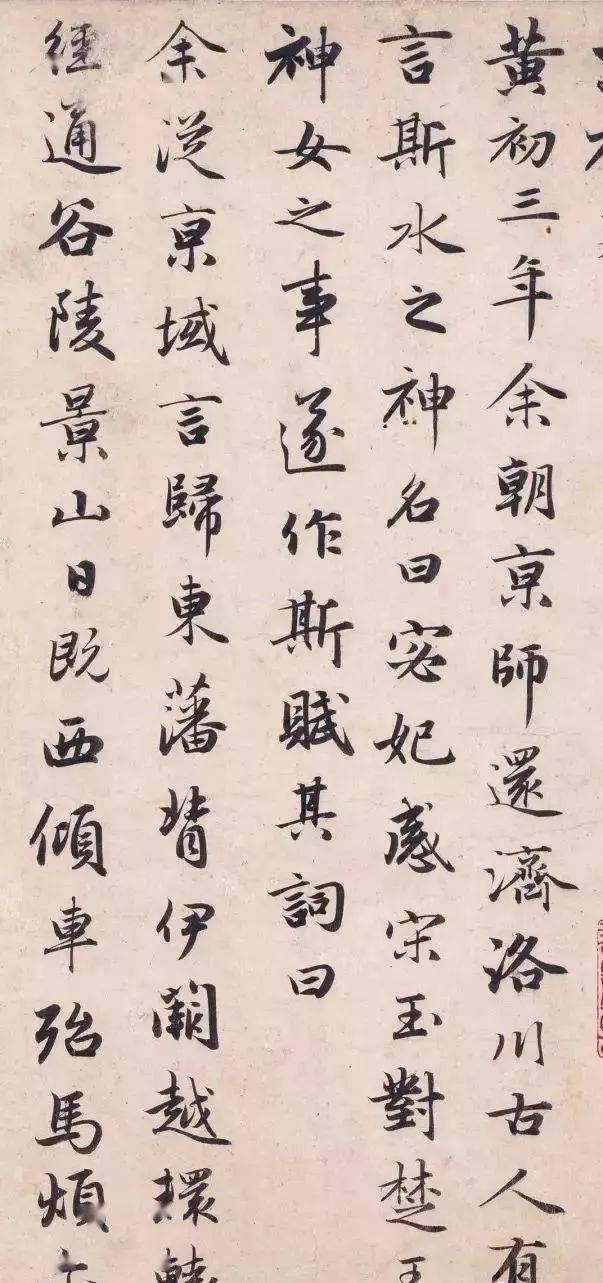 黄初三年余朝京師還濟洛川古人有
言斯水之神名曰宓妃感宋玉對楚王
神女之事遂作斯賦其詞曰
余從京域言歸東藩背伊闕越轘轅
經通谷陵景山日既西傾車殆馬煩